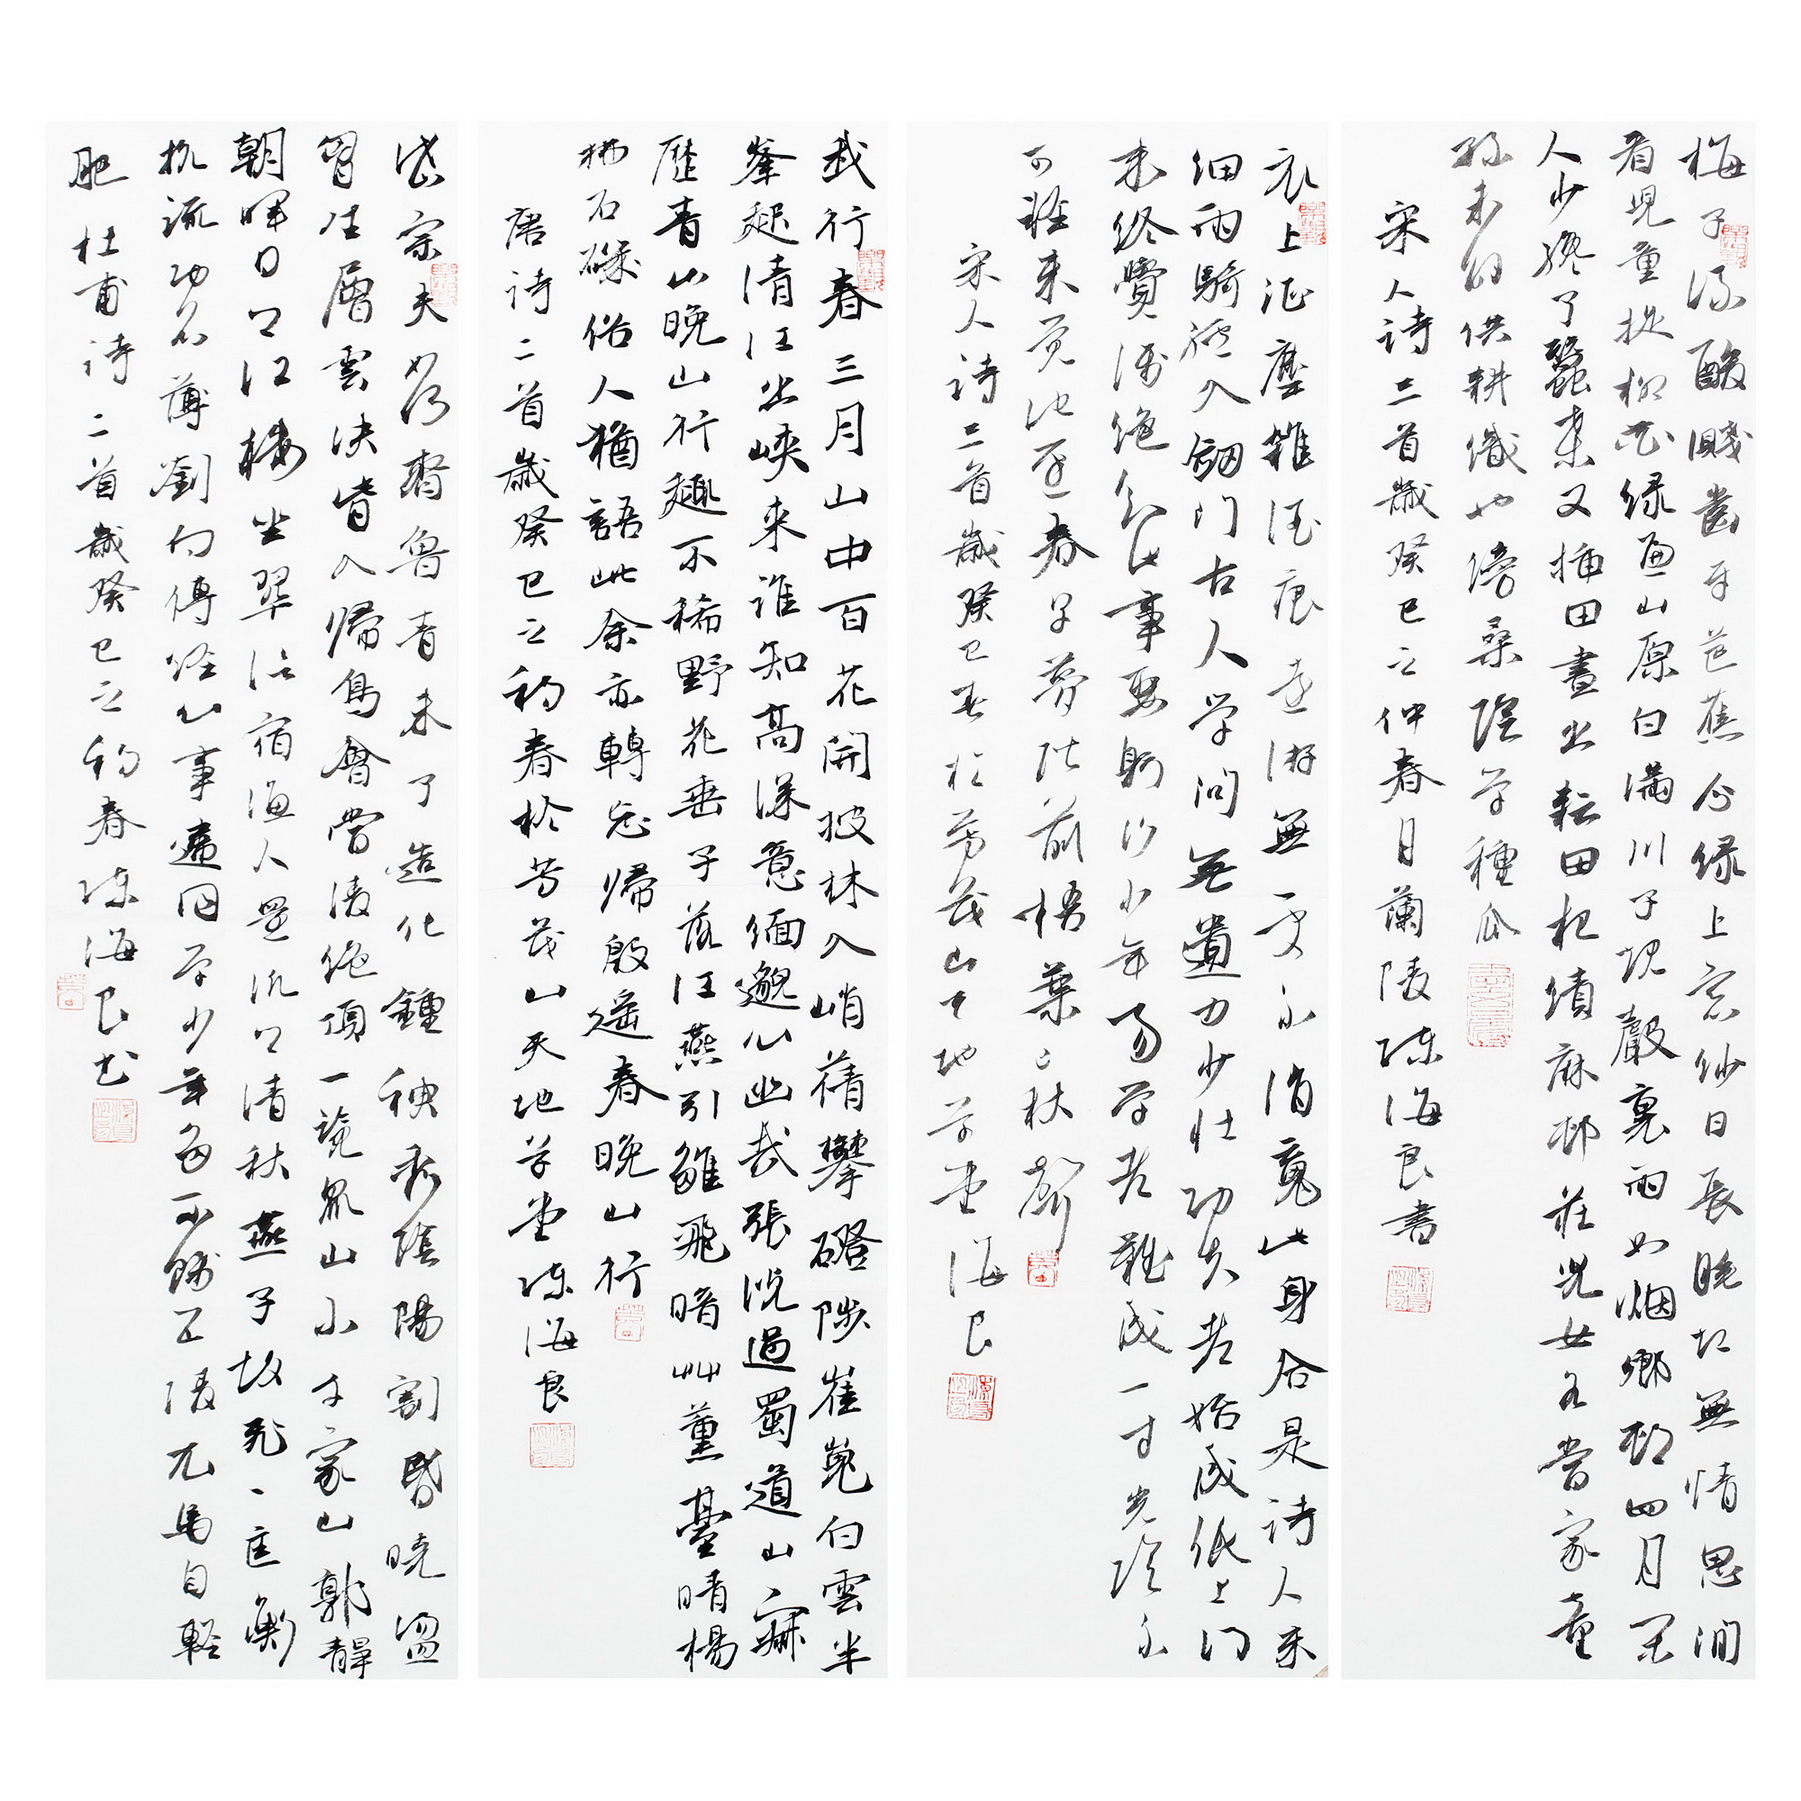 梅子流酸濺齒牙芭蕉分綠上窗紗日長睡起無情思閒
看兒童捉柳花綠遍山原白滿川子規聲裏雨如烟鄉邨四月閒
人少才了蠶桑又插田晝出耘田夜績麻邨莊兒女各當家童
孫未解供耕織也傍桑陰學種瓜
宋人詩三首歲癸巳之仲春月蘭陵陳海良書
衣上征塵雜酒痕遠游無處不消魂此身合是詩人未
細雨騎驢入劍門古人學問無遺力少壯功夫老始成紙上得
來終覺淺絕知此事要躬行少年易學老難成一寸光陰不
可輕未覺池塘春草夢階前梧葉已秋聲
宋人詩三首歲癸巳春於芳茂山天地草堂海良
我行春三月山中百花開披林入峭蒨攀磴陟崔嵬白雲半
峯起清江出峽來誰知高深意緬邈心幽哉張說過蜀道山寂
歷青山晚山行趣不稀野花垂子落江燕引雛飛暗艸薰薹晴楊
拂石磯俗人猶語此余亦轉忘歸殷遙春晚山行
唐詩二首歲癸巳之初春於芳茂山天地草堂陳海良
岱宗夫如何齊魯青未了造化鍾神秀陰陽割昏曉盪
胷生層雲決眥入歸鳥會當凌絕頂一覽眾山小千家山郭靜
朝暉日日江樓坐翠信宿漁人還汎汎清秋燕子故飛飛匡衡
抗疏功名薄劉向傳經心事違同學少年多不賤五陵衣馬自輕
肥 杜甫詩二首歲癸巳之初春陳海良書